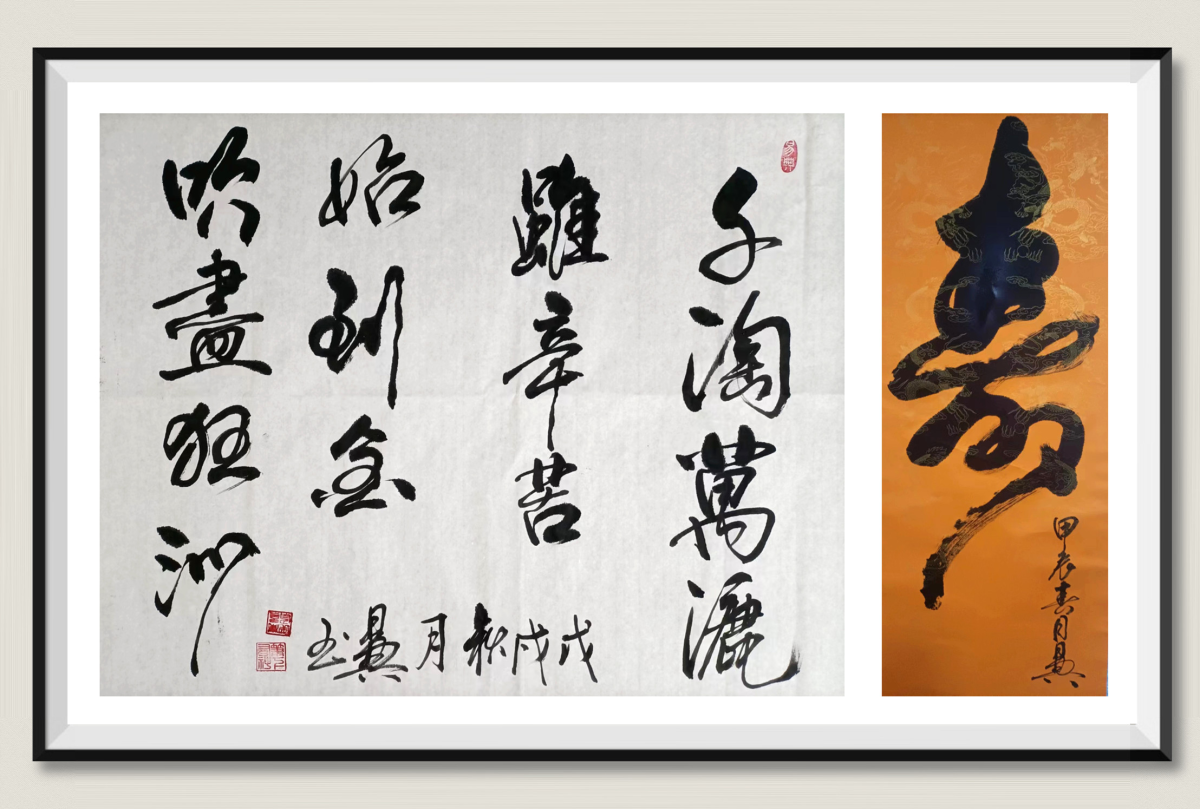 壽
甲辰春月
千淘萬漉
雖辛苦
始到金
吹盡狂沙
戊戌秋月 书